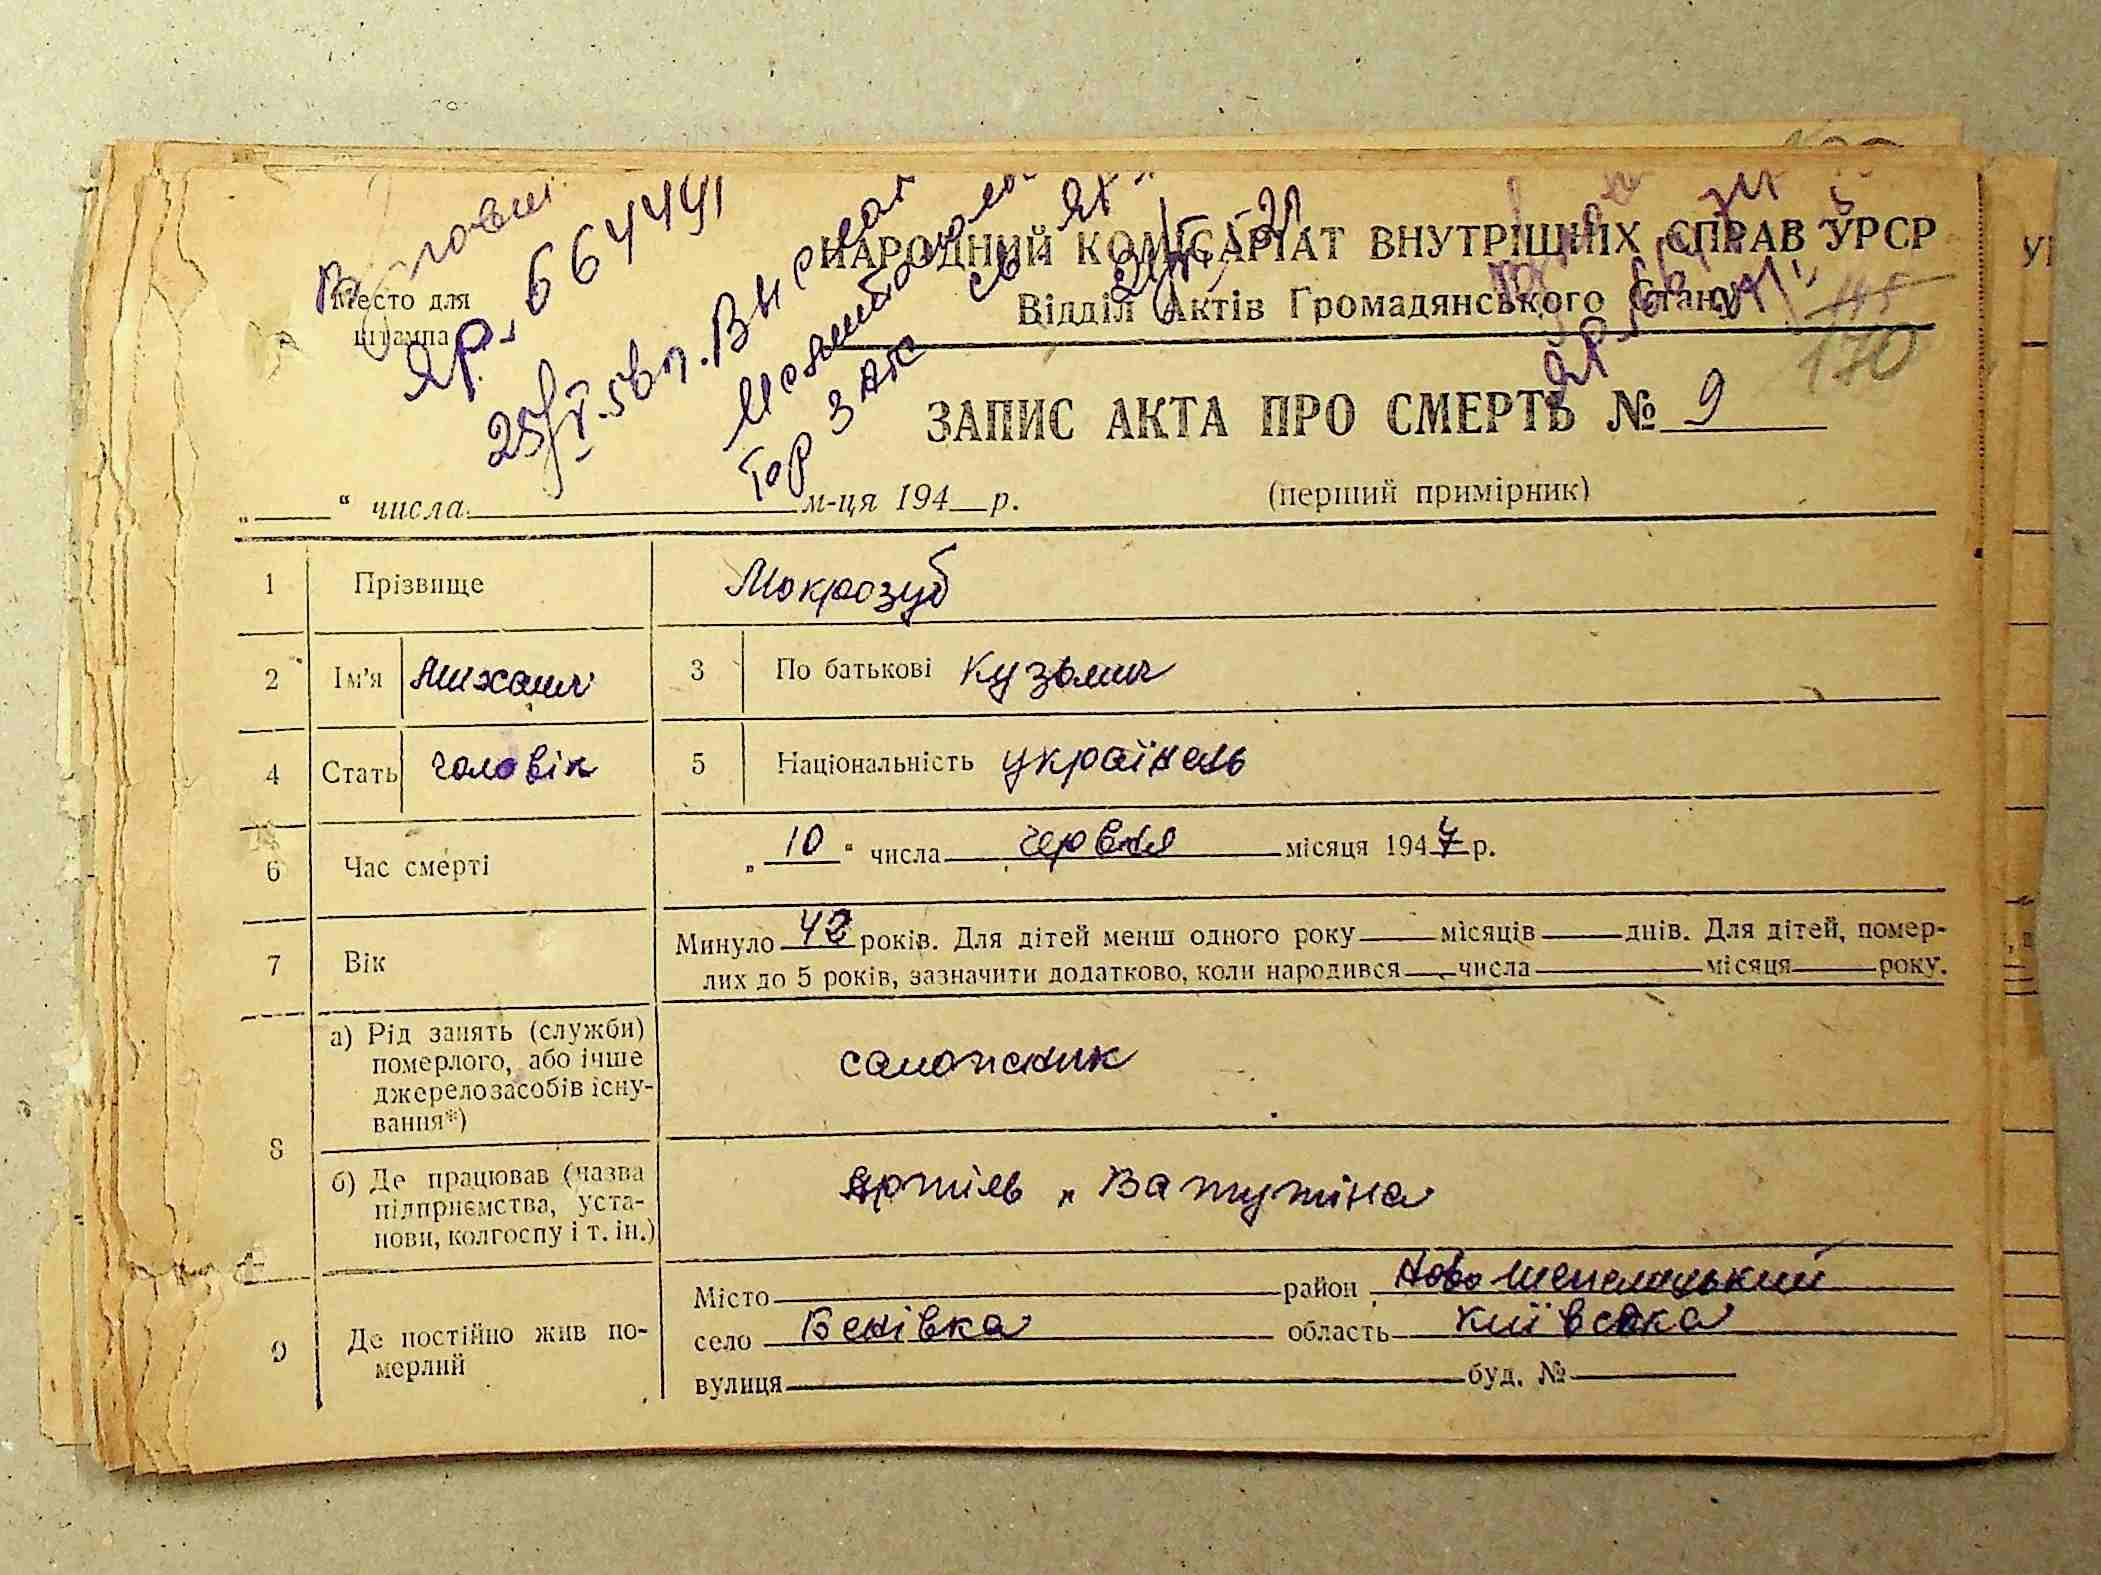 ЯР. 664491
НАРОДНИЙ КОМІСАРІАТ ВНУТРІШНІХ СПРАВ УРСР
Место для
штампа
Відділ Актів Громадянського Стану
170
ЗАПИС АКТА ПРО СМЕРТЬ № 9
„ “ числа м-ця 194 р. (перший примірник)
1 Прізвище Мокрозуб
2 Ім'я Михаил 3 По батькові Кузьмич
4 Стать чоловік 5 Національність українець
6 Час смерті „ 10 “ числа червня місяця 1947 р.
7 Вік Минуло 42 років. Для дітей менш одного року місяців днів. Для дітей, помер-
лих до 5 років, зазначити додатково, коли народився числа місяця року.
8 а) Рід занять (служби)
померлого, або інше
джерело засобів існу-
вання*)
сапожник
б) Де працював (назва
підприємства, уста-
нови, колгоспу і т. ін.)
Артіль „ Ватутіна
9 Де постійно жив по-
мерлий
Місто район Ново Шепелицький
село Бенівка область Київська
вулиця буд. №